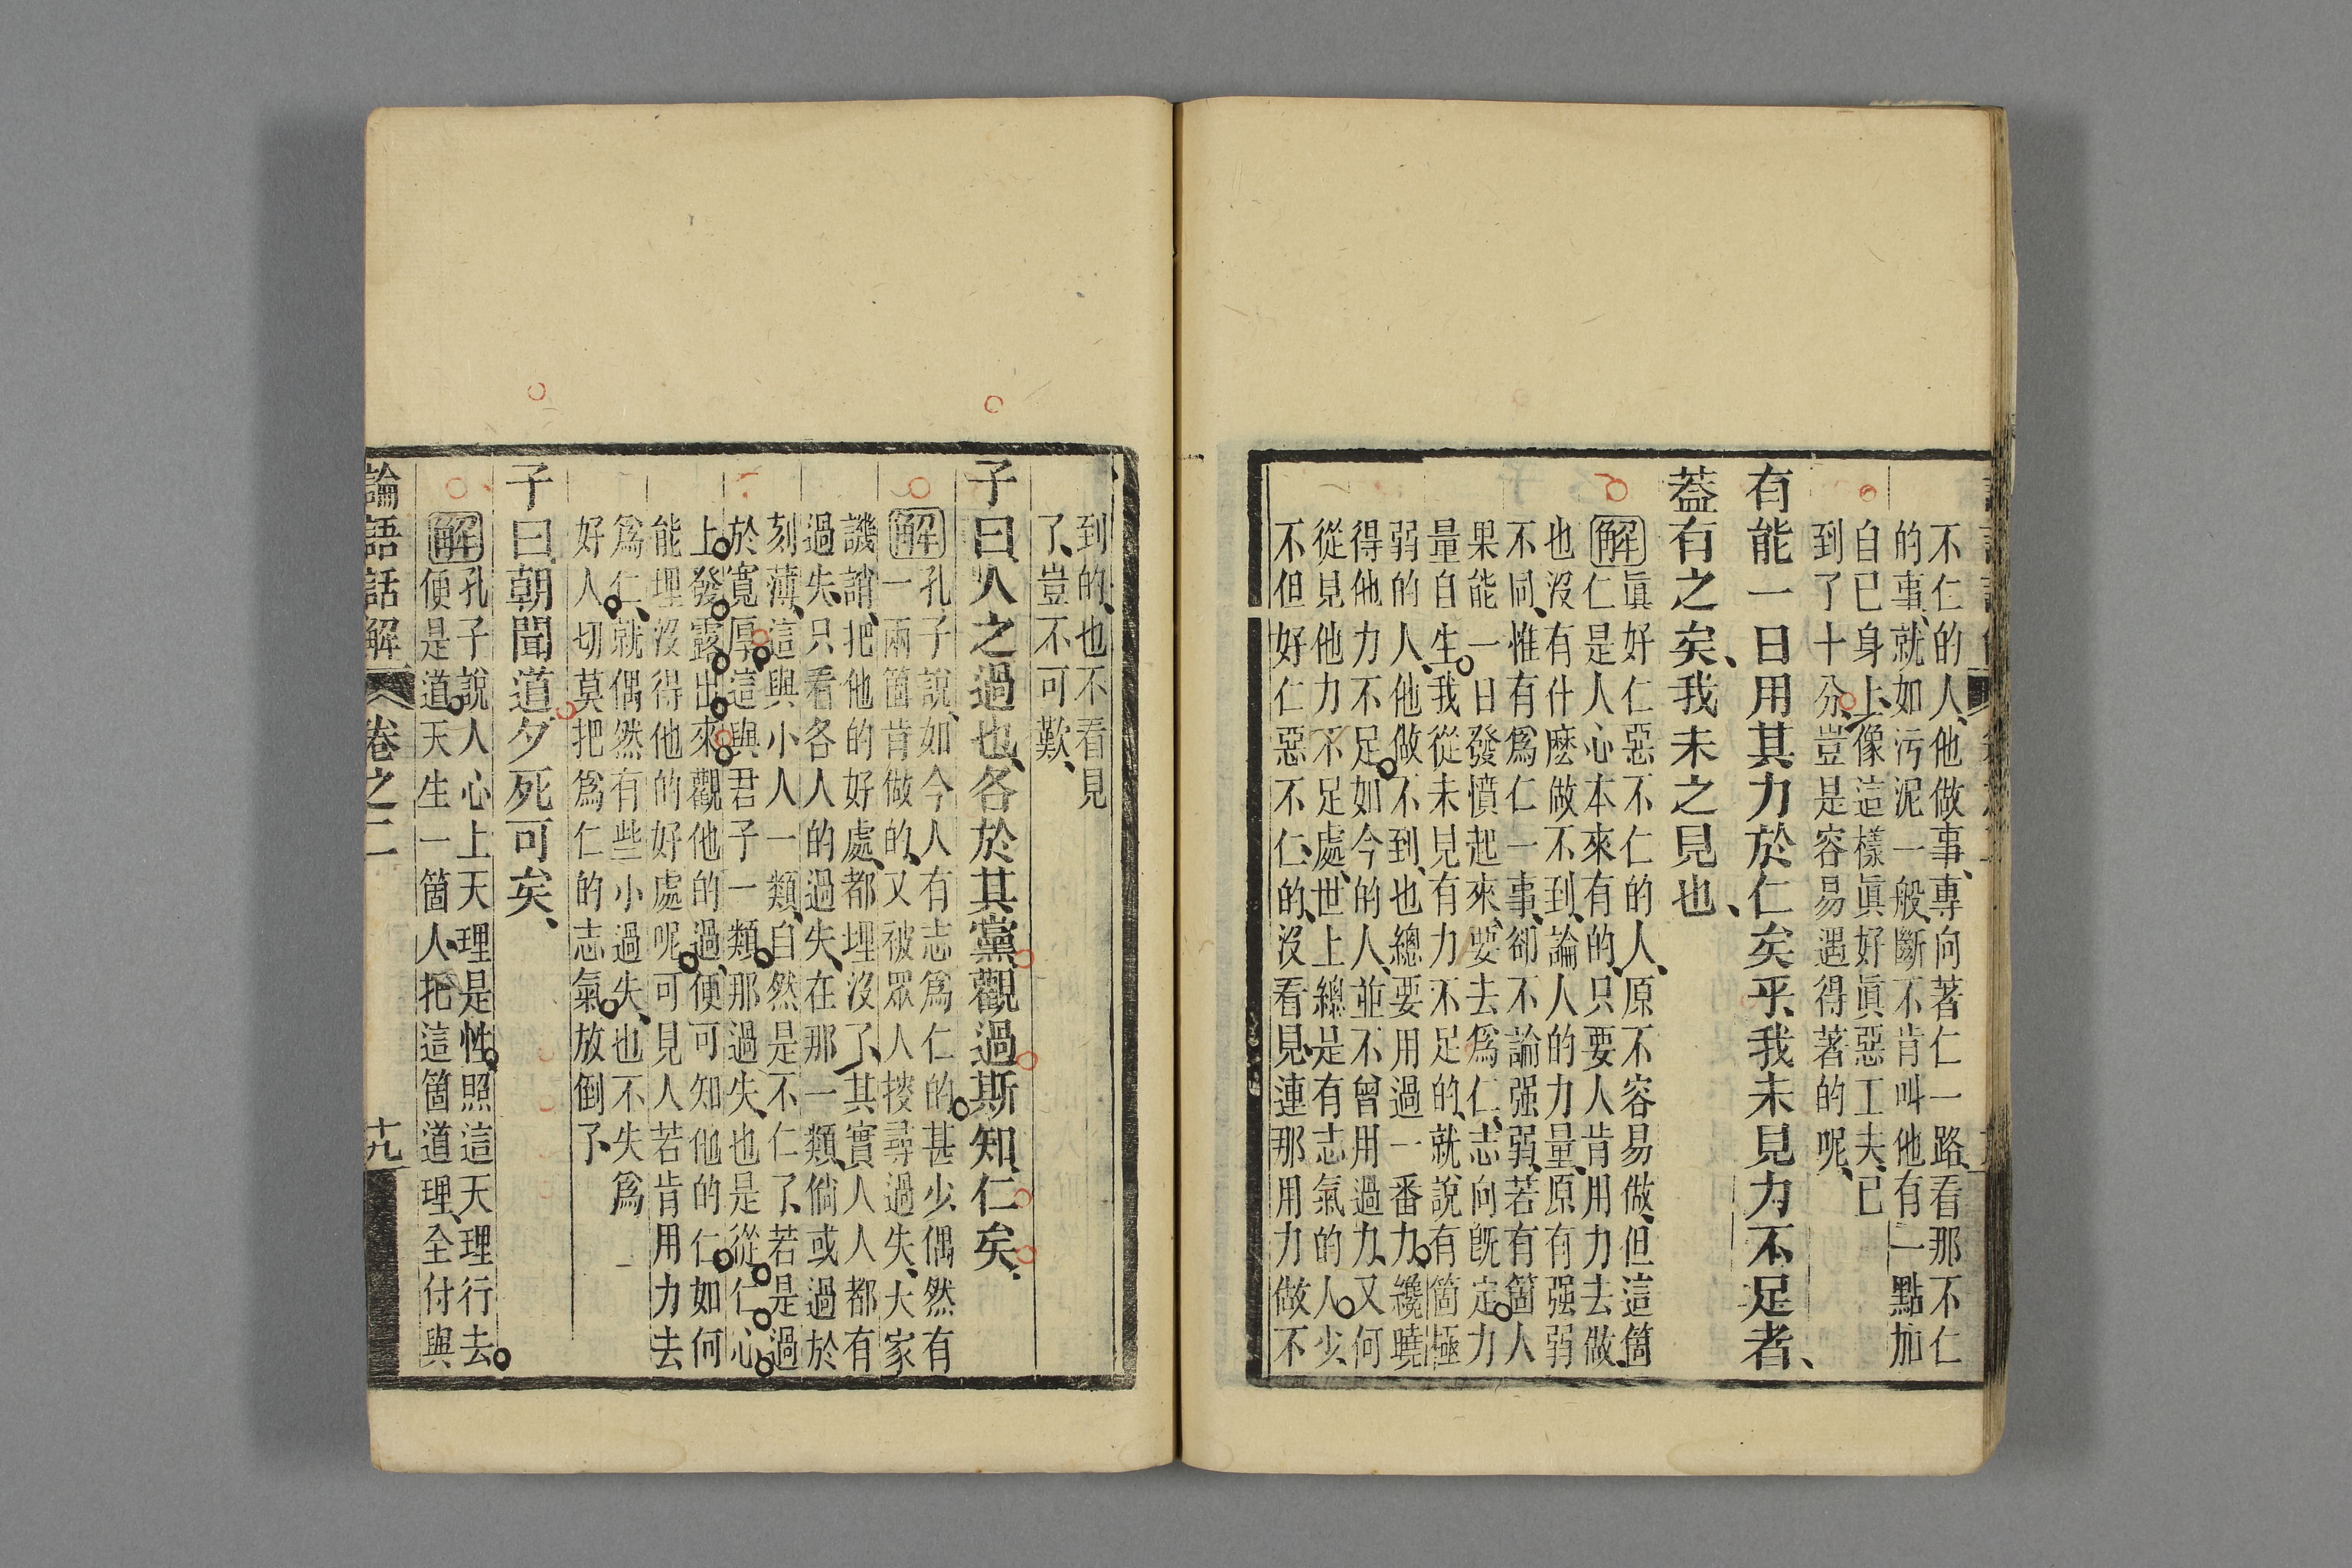 不仁的人、他做事、專向著仁一路、看那不仁
的事、就如污泥一般、斷不肯叫他有一點加
自已身上、像這樣眞好眞惡工夫、已
到了十分、豈是容易遇得著的呢、
有能一日用其力於仁矣乎、我未見力不足者、
葢有之矣、我未之見也、
解眞好仁惡不仁的人、原不容易做、但這箇
仁是人心本來有的、只要人肯用力去做、
也沒有什麽做不到、論人的力量、原有强弱
不同、惟有爲仁一事、卻不論强弱、若有箇人
果能一日發憤起來、要去爲仁、志向旣定力
量自生我從未見有力不足的、就說有箇極
弱的人、他做不到、也總要用過一番力、纔曉
得他力不足如今的人、並不曾用過力、又何
從見他力不足處、世上總是有志氣的人少、
不但好仁惡不仁的、沒看見、連那用力做不
到的、也不看見
了、豈不可歎、
子曰、人之過也、各於其黨、觀過斯知仁矣、
解孔子說、如今人有志爲仁的甚少偶然有
一兩箇肯做的、又被眾人搜尋過失、大家
譏誚、把他的好處、都埋沒了、其實人人都有
過失、只看各人的過失、在那一類、倘或過於
刻薄、這與小人一類、自然是不仁了、若是過
於寬厚這與君子一類那過失、也是從仁心
上發露出來觀他的過、便可知他的仁如何
能埋沒得他的好處呢可見人若肯用力去
爲仁、就偶然有些小過失、也不失爲
好人切莫把爲仁的志氣放倒了、
子曰、朝聞道、夕死可矣、
解孔子說人心上天理是性照這天理行去
便是道天生一箇人、把這箇道理、全付與
論語話解 卷之二 十九